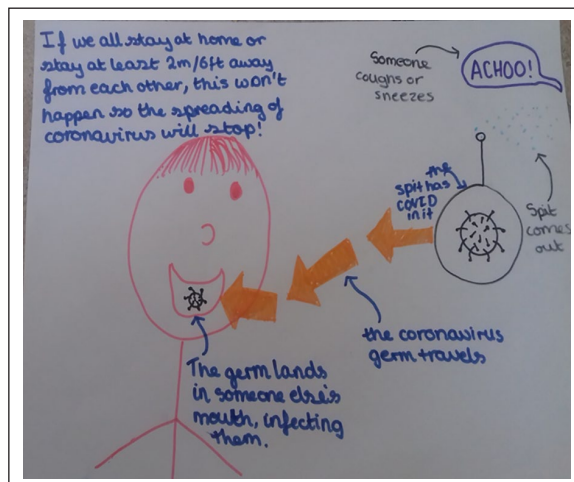 If we all stay at home or
stay at least 2m/6ft away
from each other, this won't
happen so the spreading of
coronavirus will stop!
Someone
coughs or
sneezes
ACHOO!
Spit
comes
out
the
spit has
COVID
in it
the coronavirus
germ travels
The germ lands
in someone else's
mouth, infecting
them.